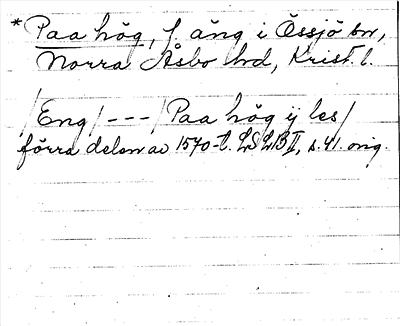 * Paa hög, f. äng i Össjö sn,
Norra Åsbo hd, Krist. l.
/Eng/ --- /Paa hög ij les/
förra delen av 1570-t. LSLB II, s. 41. orig.